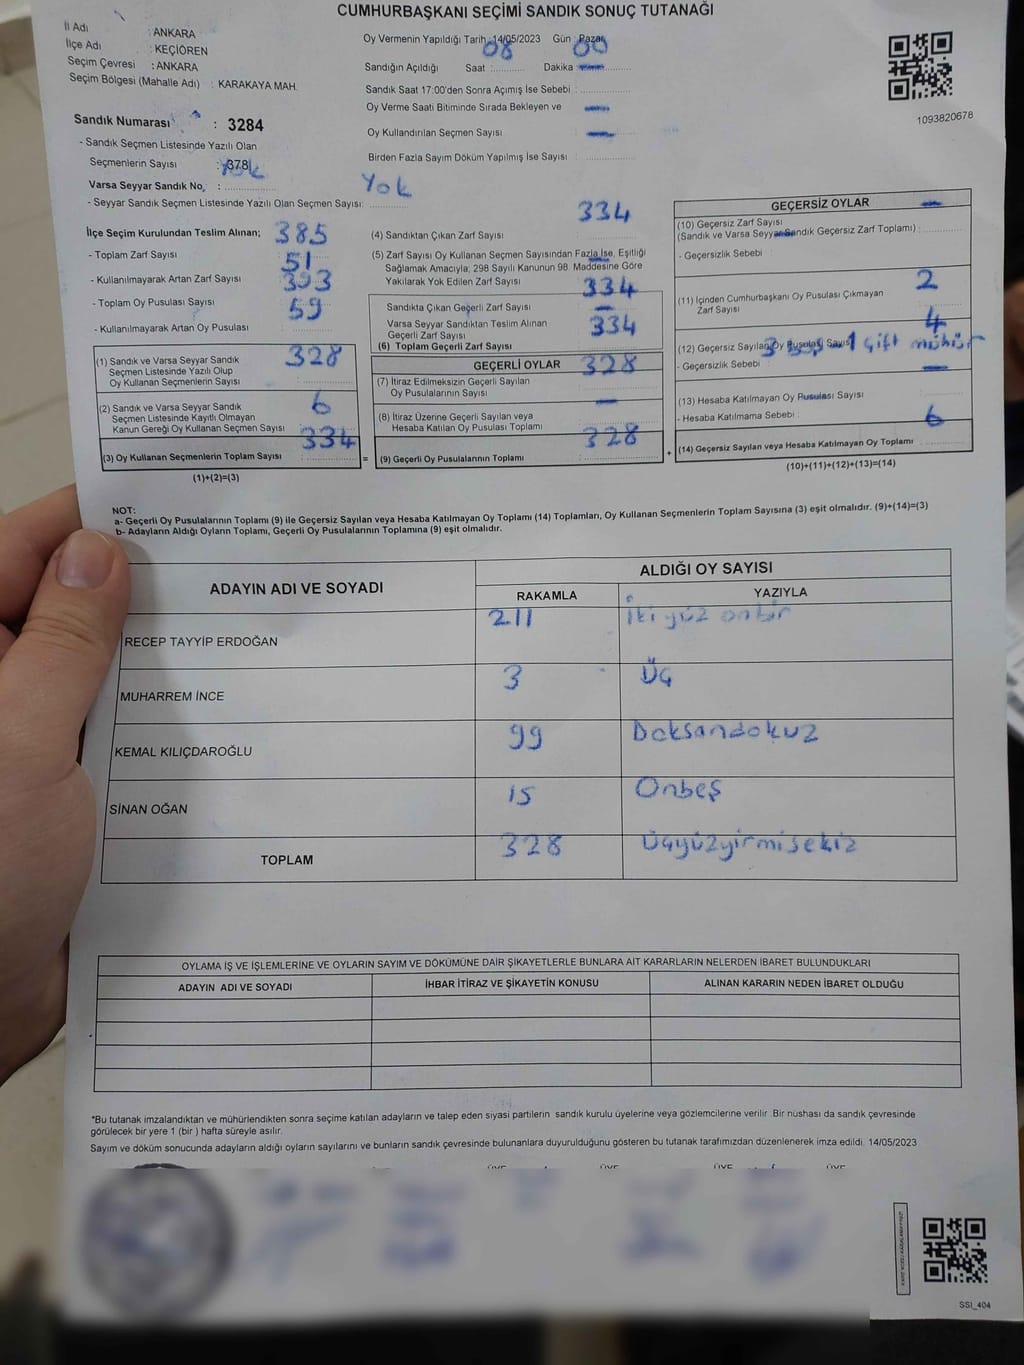 CUMHURBAŞKANI SEÇİMİ SANDIK SONUÇ TUTANAĞI
İl Adı : ANKARA
İlçe Adı : KEÇİÖREN
Seçim Çevresi : ANKARA
Seçim Bölgesi (Mahalle Adı) : KARAKAYA MAH.
Sandık Numarası : 3284
- Sandık Seçmen Listesinde Yazılı Olan
Seçmenlerin Sayısı : 378
Varsa Seyyar Sandık No. : Yok
- Seyyar Sandık Seçmen Listesinde Yazılı Olan Seçmen Sayısı: Yok
Oy Vermenin Yapıldığı Tarih : 14/05/2023 Gün : Pazar
Sandığın Açıldığı Saat : 08 Dakika : 00
Sandık Saat 17:00'den Sonra Açımış İse Sebebi : —
Oy Verme Saati Bitiminde Sırada Bekleyen ve
Oy Kullandırılan Seçmen Sayısı : —
Birden Fazla Sayım Döküm Yapılmış İse Sayısı : —
1093820678
İlçe Seçim Kurulundan Teslim Alınan;
- Toplam Zarf Sayısı 385
- Kullanılmayarak Artan Zarf Sayısı 51
- Toplam Oy Pusulası Sayısı 393
- Kullanılmayarak Artan Oy Pusulası 59
(1) Sandık ve Varsa Seyyar Sandık
Seçmen Listesinde Yazılı Olup
Oy Kullanan Seçmenlerin Sayısı 328
(2) Sandık ve Varsa Seyyar Sandık
Seçmen Listesinde Kayıtlı Olmayan
Kanun Gereği Oy Kullanan Seçmen Sayısı 6
(3) Oy Kullanan Seçmenlerin Toplam Sayısı 334
(1)+(2)=(3)
=
(4) Sandıktan Çıkan Zarf Sayısı 334
(5) Zarf Sayısı Oy Kullanan Seçmen Sayısından Fazla İse, Eşitliği
Sağlamak Amacıyla; 298 Sayılı Kanunun 98. Maddesine Göre
Yakılarak Yok Edilen Zarf Sayısı —
Sandıkta Çıkan Geçerli Zarf Sayısı 334
Varsa Seyyar Sandıktan Teslim Alınan
Geçerli Zarf Sayısı —
(6) Toplam Geçerli Zarf Sayısı 334
GEÇERLİ OYLAR
(7) İtiraz Edilmeksizin Geçerli Sayılan
Oy Pusulalarının Sayısı 328
(8) İtiraz Üzerine Geçerli Sayılan veya
Hesaba Katılan Oy Pusulası Toplamı —
(9) Geçerli Oy Pusulalarının Toplamı 328
+
GEÇERSİZ OYLAR
(10) Geçersiz Zarf Sayısı
(Sandık ve Varsa Seyyar Sandık Geçersiz Zarf Toplamı) : —
- Geçersizlik Sebebi —
(11) İçinden Cumhurbaşkanı Oy Pusulası Çıkmayan
Zarf Sayısı 2
(12) Geçersiz Sayılan Oy Pusulası Sayısı 4
- Geçersizlik Sebebi : 3 boş - 1 çift mühür
(13) Hesaba Katılmayan Oy Pusulası Sayısı —
- Hesaba Katılmama Sebebi : —
(14) Geçersiz Sayılan veya Hesaba Katılmayan Oy Toplamı 6
(10)+(11)+(12)+(13)=(14)
NOT:
a- Geçerli Oy Pusulalarının Toplamı (9) ile Geçersiz Sayılan veya Hesaba Katılmayan Oy Toplamı (14) Toplamları, Oy Kullanan Seçmenlerin Toplam Sayısına (3) eşit olmalıdır. (9)+(14)=(3)
b- Adayların Aldığı Oyların Toplamı, Geçerli Oy Pusulalarının Toplamına (9) eşit olmalıdır.
ADAYIN ADI VE SOYADI ALDIĞI OY SAYISI
RAKAMLA YAZIYLA
RECEP TAYYİP ERDOĞAN 211 İki yüz onbir
MUHARREM İNCE 3 Üç
KEMAL KILIÇDAROĞLU 99 Doksandokuz
SİNAN OĞAN 15 Onbeş
TOPLAM 328 Üçyüzyirmisekiz
OYLAMA İŞ VE İŞLEMLERİNE VE OYLARIN SAYIM VE DÖKÜMÜNE DAİR ŞİKAYETLERLE BUNLARA AİT KARARLARIN NELERDEN İBARET BULUNDUKLARI
ADAYIN ADI VE SOYADI İHBAR İTİRAZ VE ŞİKAYETİN KONUSU ALINAN KARARIN NEDEN İBARET OLDUĞU
*Bu tutanak imzalandıktan ve mühürlendikten sonra seçime katılan adayların ve talep eden siyasi partilerin sandık kurulu üyelerine veya gözlemcilerine verilir. Bir nüshası da sandık çevresinde
görülecek bir yere 1 (bir ) hafta süreyle asılır.
Sayım ve döküm sonucunda adayların aldığı oyların sayılarını ve bunların sandık çevresinde bulunanlara duyurulduğunu gösteren bu tutanak tarafımızdan düzenlenerek imza edildi. 14/05/2023
ÜYE ÜYE ÜYE ÜYE
SSI_404